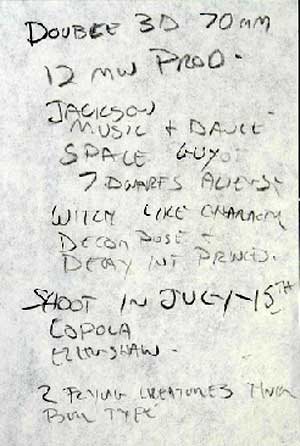 DOUBLE 3D 70MM
12 MW PROD.
JACKSON
MUSIC + DANCE
SPACE GUY
7 DWARFS ALIENS
WITCH LIKE CHARACTER
DECOMPOSE +
DECAY INT PRINCES.
SHOOT IN JULY-15TH
COPOLA
ELLINSHAW.
2 FLYING CREATURES
TYPE